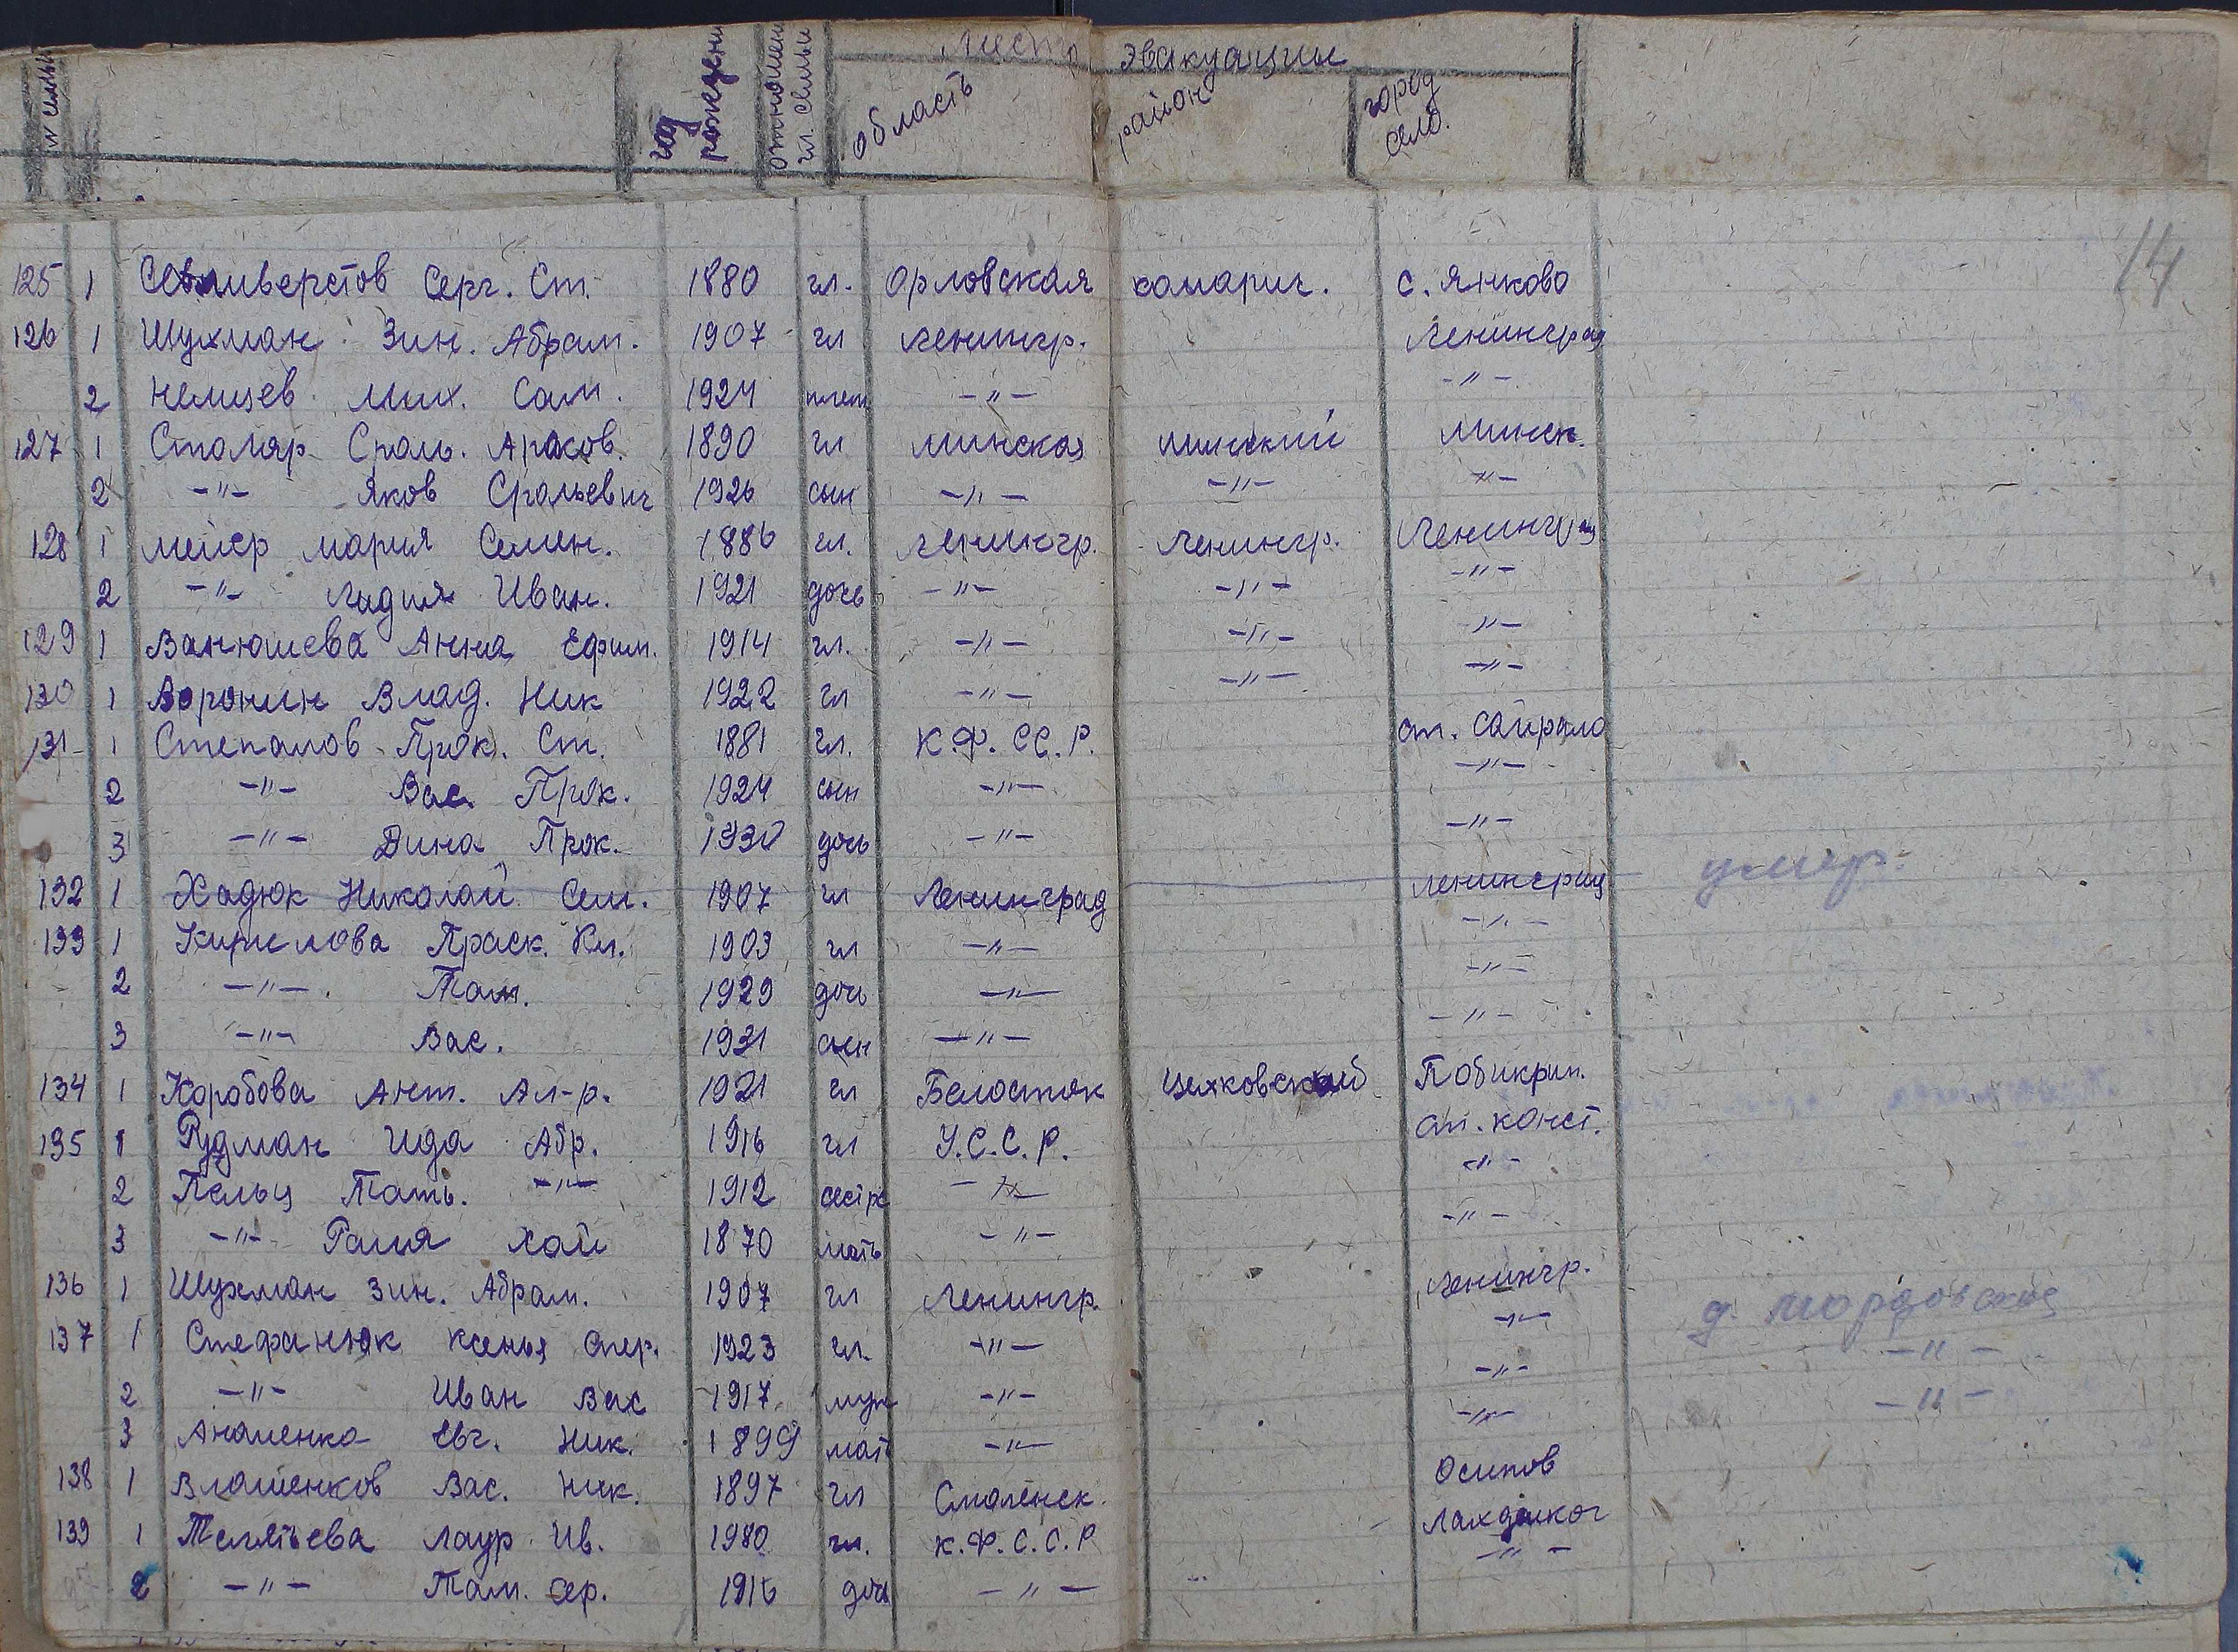 № семьи год рождени отношен гл. семьи Место эвакуации
область район город село.
14
125 1 Селиверстов Серг. Ст. 1880 гл. Орловская комарич. с. Янково
126 1 Шухман Зин. Абрам. 1907 гл Ленингр. Ленинград
2 Немцев Мих. Сам. 1924 плем -"- -"-
127 1 Столяр Сроль. Арсков. 1890 гл Минская Минский Минск.
2 -"- Яков Срольевич 1926 сын -"- -"- -"-
128 1 Мейер Мария Семен. 1886 гл. Ленингр. Ленингр. Ленинград
2 -"- Лидия Иван. 1921 дочь -"- -"- -"-
129 1 Ванюшева Анна Ефим. 1914 гл. -"- -"- -"-
130 1 Воронин Влад. Ник 1922 гл -"- -"- -"-
131 1 Степанов Прок. Ст. 1881 гл. К.Ф.СС.Р. ст. Сайрало
2 -"- Вас. Прок. 1924 сын -"- -"-
3 -"- Дина Прок. 1930 дочь -"- -"-
132 1 Хадюк Николай Сем. 1907 гл Ленинград Ленинград умер
133 1 Кирилова Праск. Кл. 1903 гл -"- -"-
2 -"- Там. 1929 дочь -"- -"-
3 -"- Вас. 1931 сын -"- -"-
134 1 Коробова Ант. Ал-р. 1921 гл Белосток Побикрип.
135 1 Рудман Ида Абр. 1916 гл У.С.С.Р. ст. Конст.
2 Пельц Тать. -"- 1912 сестра -"- -"-
3 -"- Рашя Хай 1870 мать -"- -"-
136 1 Шухман Зин. Абрам. 1907 гл Ленингр. Ленингр. д. мордовская
137 1 Стефанюк Ксенья Спер. 1923 гл. -"- -"- -"-
2 -"- Иван Вас 1917 муж -"- -"- -"-
3 Ананенко Евг. Ник. 1899 мать -"- -"-
138 1 Влашенков Вас. Ник. 1897 гл Смоленск. Осипов
139 1 Телятьева Лаур. Ив. 1980 гл. К.Ф.С.С.Р
2 -"- Там. Сер. 1916 дочь -"- -"-